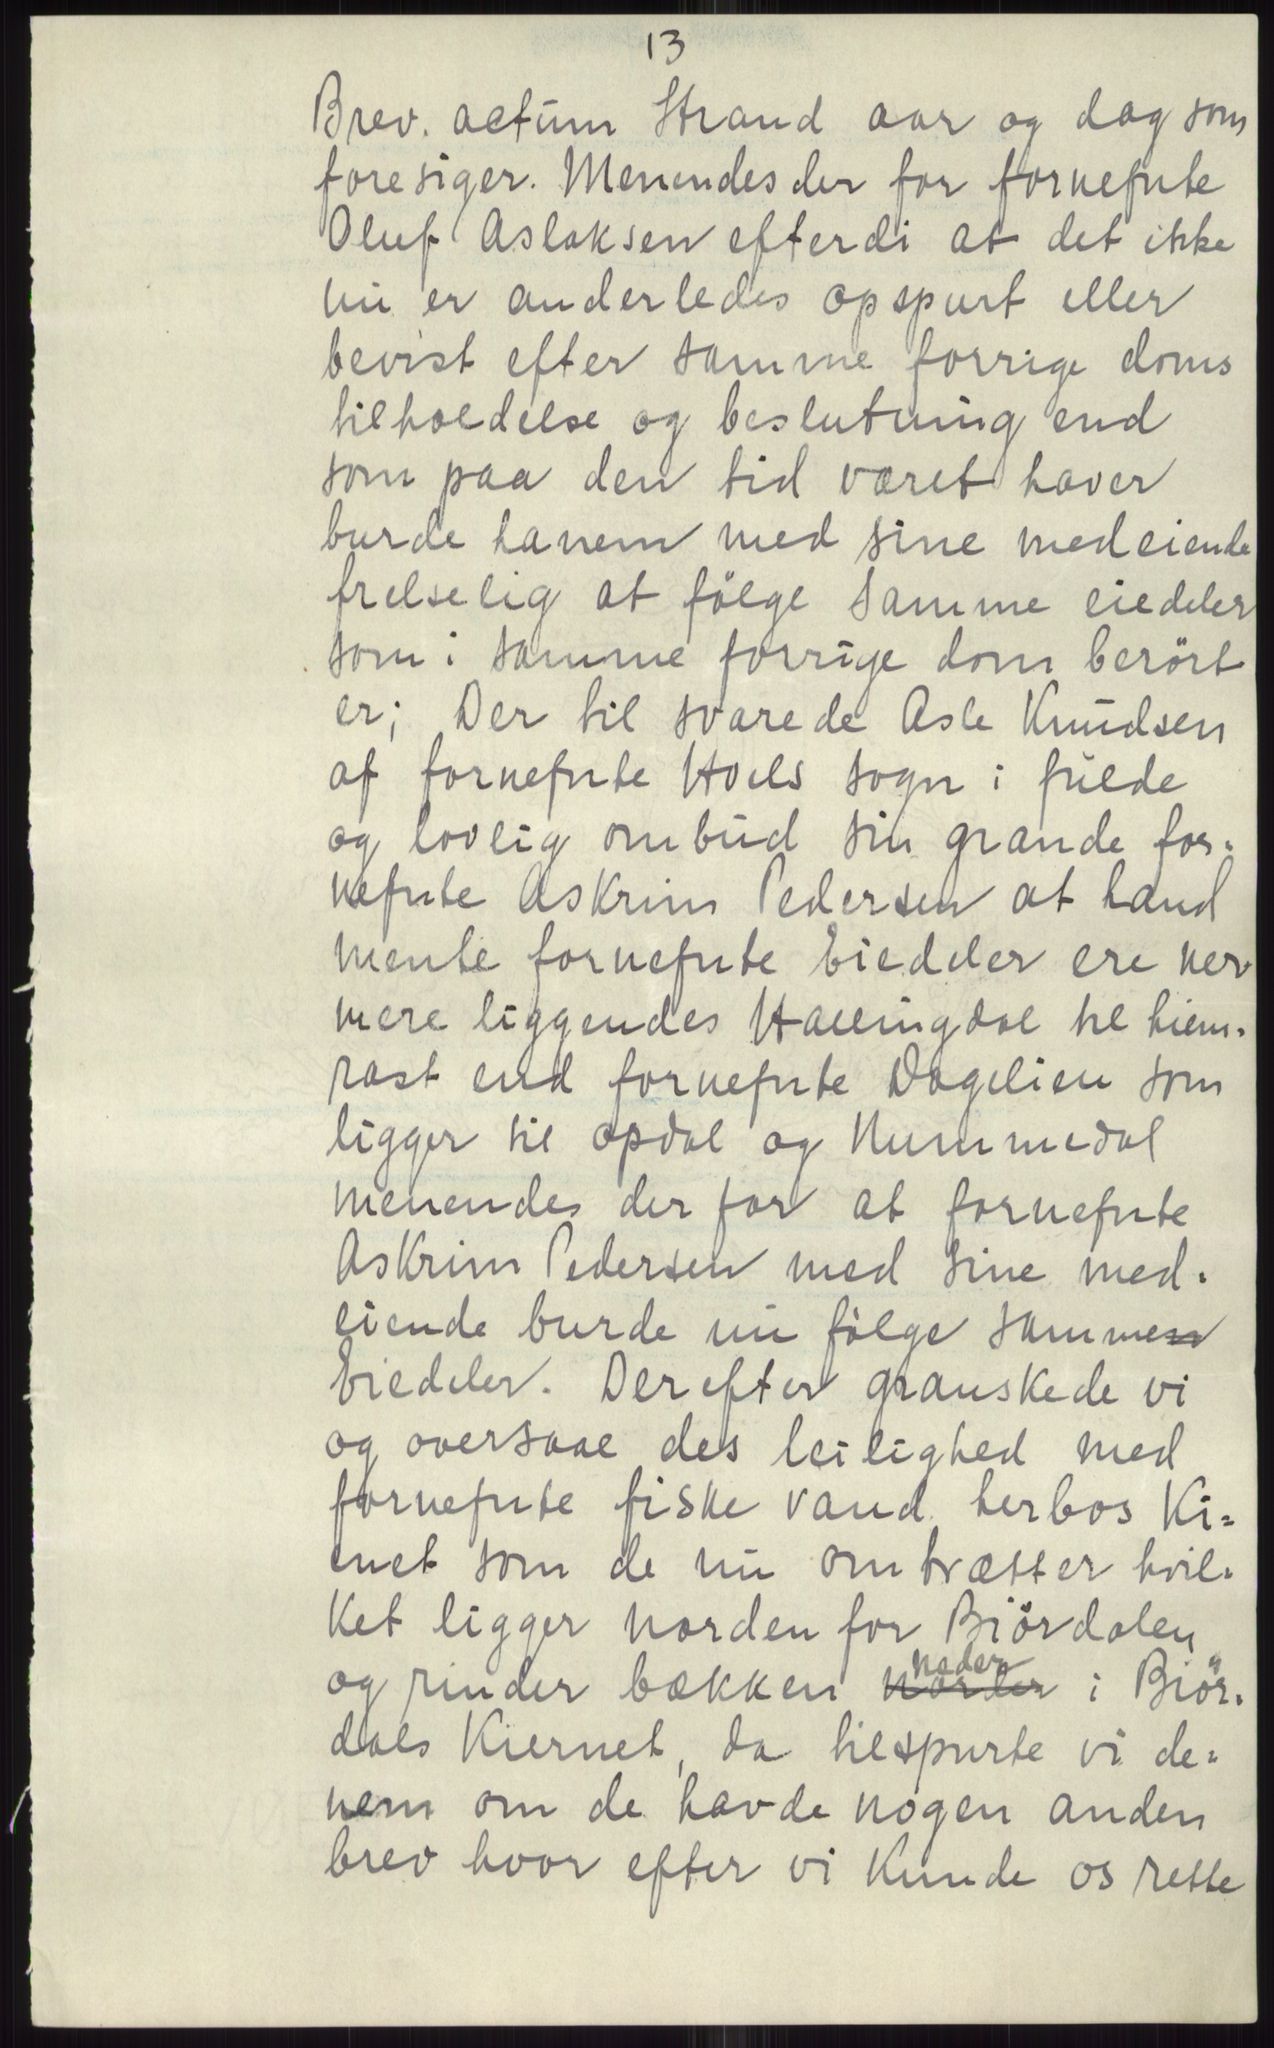 13
Brev. actum Strand aar og dag som
foresiger. Menendes der for fornefnte
Oluf Aslaksen efterdi at det ikke
nu er anderledes opspurt eller
bevist efter samme forrige doms
tilholdelse og beslutning end
som paa den tid været haver
burde hanem med sine medeiende
frelselig at fölge samme eiedeler
som i samme forrige dom berört
er; Der til svarede Asle Knudsen
af fornefnte Hols sogn i fulde
og lovlig ombud sin grande for-
nefnte Askrim Pedersen at hand
mente fornefnte Eiedeler ere ner
mere liggendes Hallingdal til hiem-
rast end fornefnte Dagelien som
ligger til opdal og Nummedal
menendes der for at fornefnte
Askrim Pedersen med sine med-
eiende burde nu fölge sammen
Eiedeler. Derefter granskede vi
og oversaae des leilighed med
fornefnte fiske vand herbos Ki-
enet som de nu omtrætter hvil-
ket ligger norden for Biördalen
og rinder bækken norder neder i Biör-
dals Kiernet, da tilspurte vi de-
nem om de havde nogen anden
brev hvor efter vi Kunde os rette